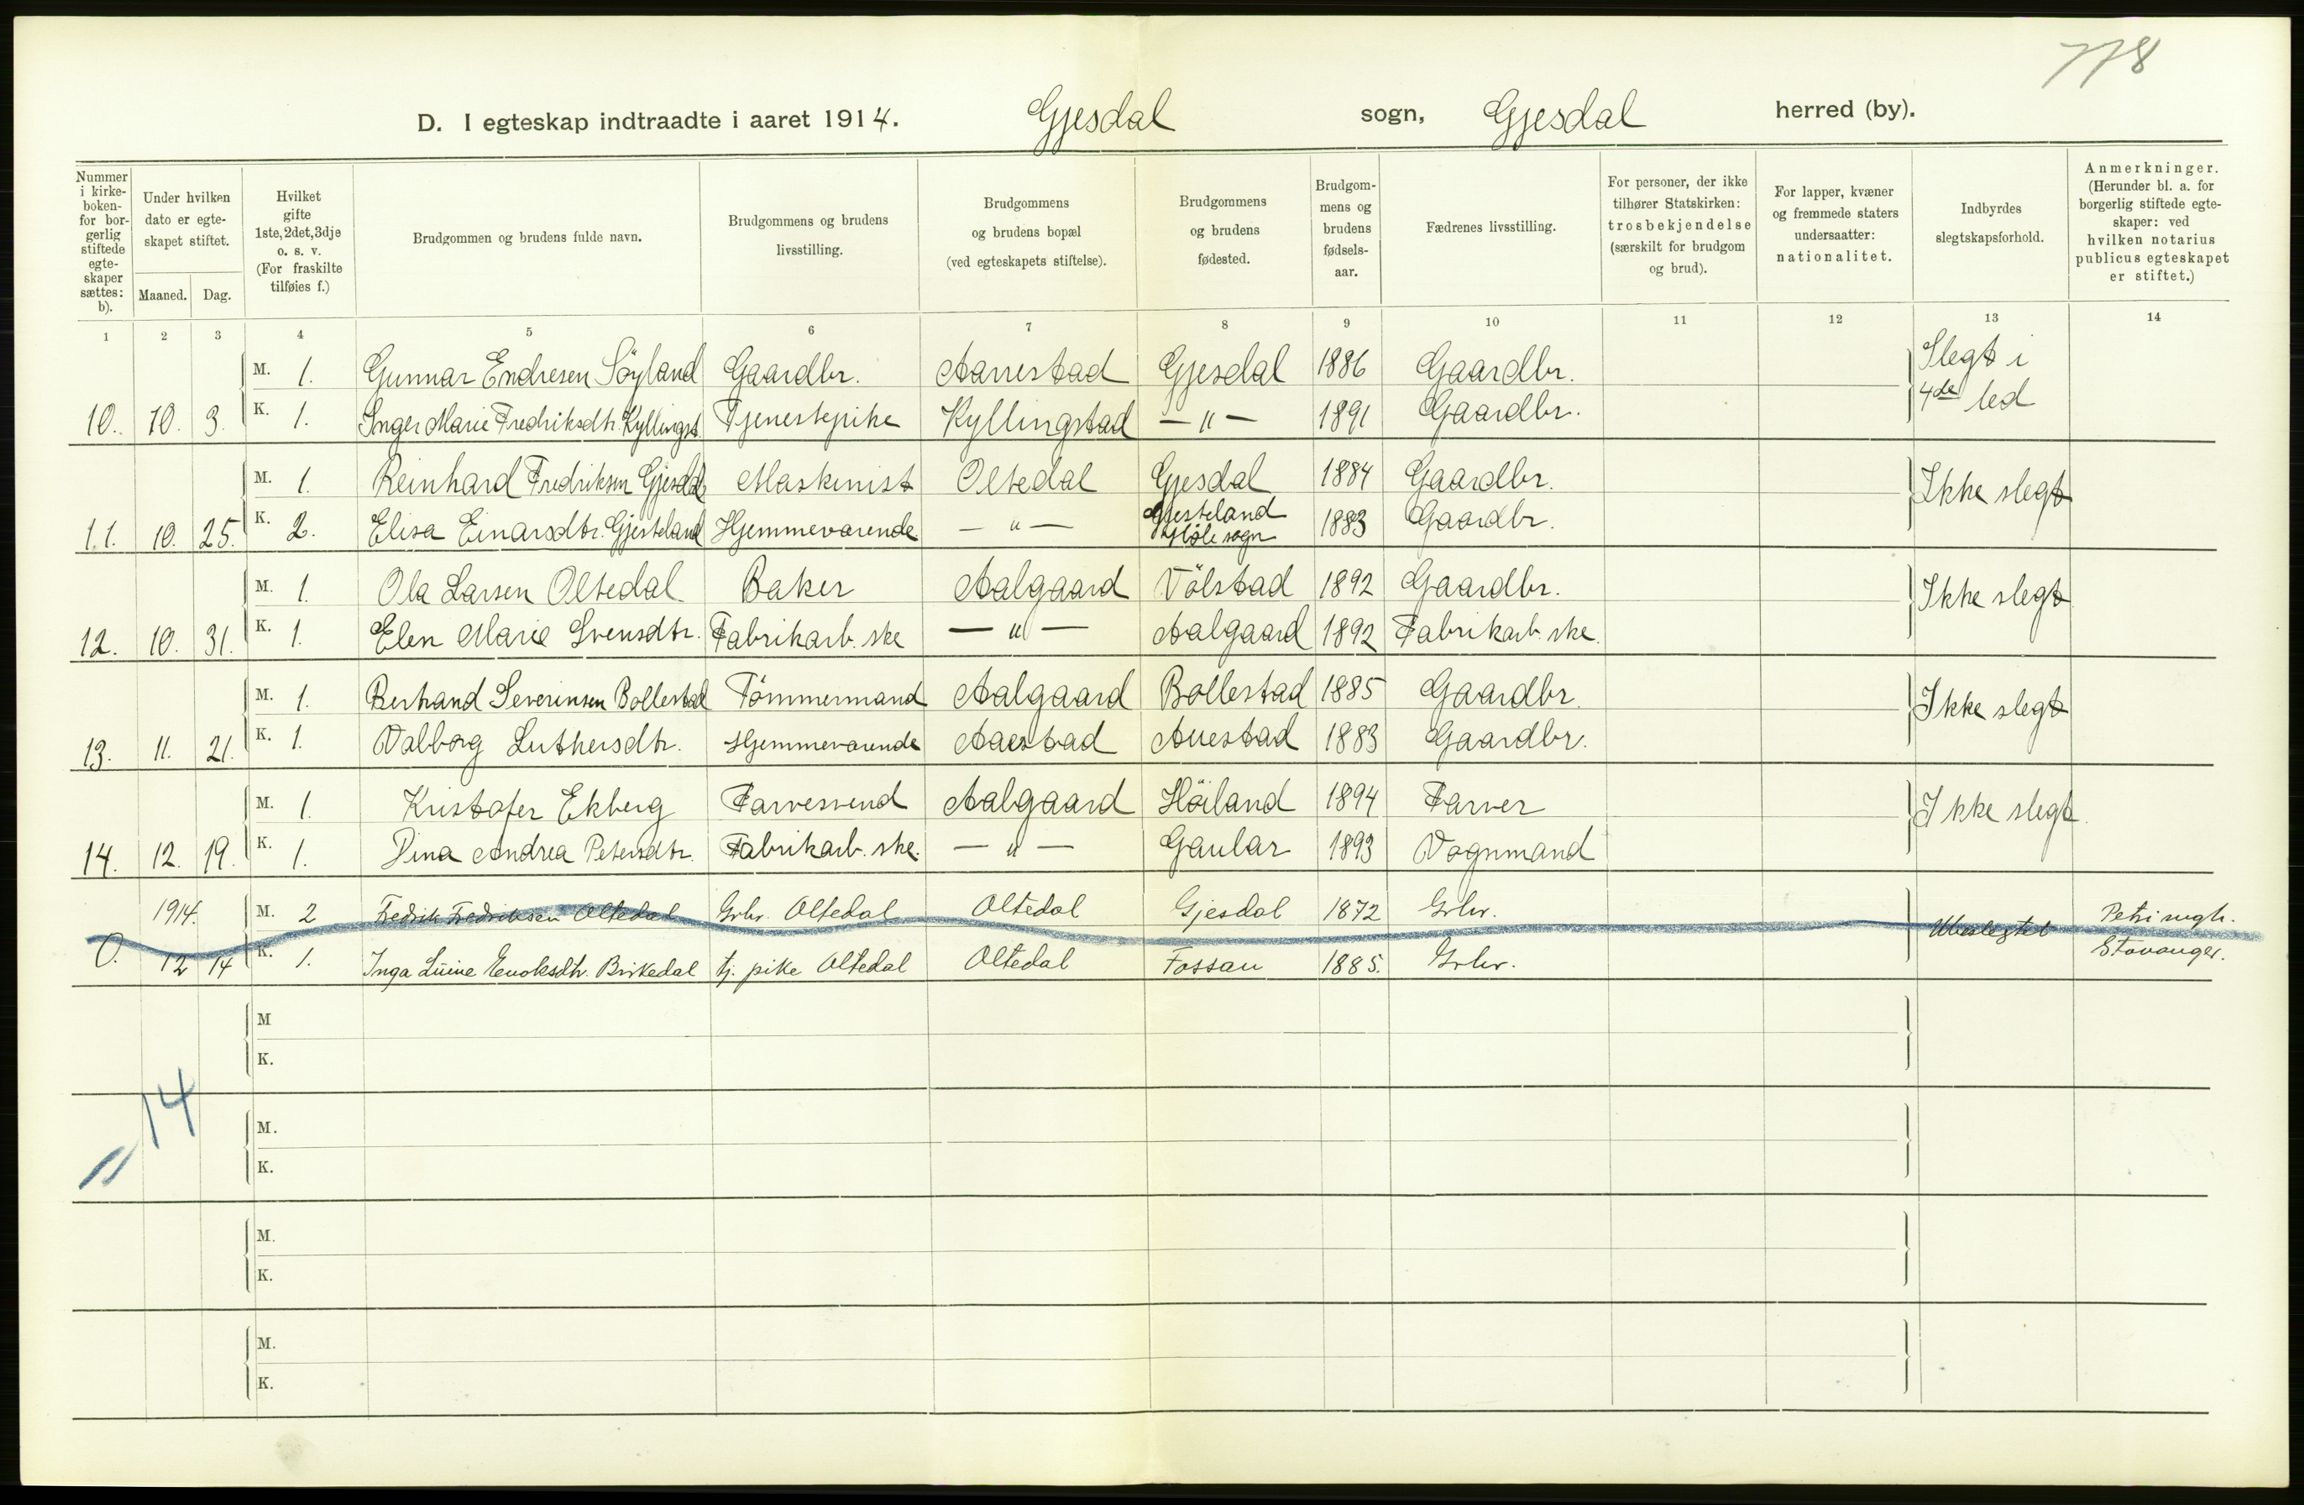 778
D. I egteskap indtraadte i aaret 1914. Gjesdal sogn, Gjesdal herred (by).
Nummer i kirkeboken- for borgerlig stiftede egteskaper sættes: b).
Under hvilken dato er egteskapet stiftet.
Maaned. Dag.
Hvilket gifte 1ste, 2det, 3dje o. s. v. (For fraskilte tilføies f.)
Brudgommen og brudens fulde navn.
Brudgommens og brudens livsstilling.
Brudgommens og brudens bopæl (ved egteskapets stiftelse).
Brudgommens og brudens fødested.
Brudgommens og brudens fødselsaar.
Fædrenes livsstilling.
For personer, der ikke tilhører Statskirken: trosbekjendelse (særskilt for brudgom og brud).
For lapper, kvæner og fremmede staters undersaatter: nationalitet.
Indbyrdes slegtskapsforhold.
Anmerkninger. (Herunder bl. a. for borgerlig stiftede egteskaper: ved hvilken notarius publicus egteskapet er stiftet.)
1 2 3 4 5 6 7 8 9 10 11 12 13 14
M. 1. Gunnar Endresen Söyland Gaardbr. Gjesdal 1886 Gaardbr. Slegt i
10. 10. 3. K. 1. Inger Marie Fredriksdtr. Kyllingst. Tjenestepike Kyllingstad — " — 1891 Gaardbr. 4de led
M. 1. Reinhard Fredriksen Gjesdal Maskinist Oltedal Gjesdal 1884 Gaardbr. Ikke slegt
11. 10. 25. K. 2. Elisa Einarsdtr. Gjesteland Hjemmevarende — " — Gjesteland Höle sogn 1883 Gaardbr.
M. 1. Ola Larsen Oltedal Baker Aalgaard Völstad 1892 Gaardbr. Ikke slegt
12. 10. 31. K. 1. Elen Marie Svensdtr. Fabrikarb.ske — " — Aalgaard 1892 Fabrikarb.ske.
M. 1. Bertrand Severinsen Bollestad Tömmermand Aalgaard Bollestad 1885 Gaardbr. Ikke slegt
13. 11. 21. K. 1. Valborg Luthersdtr. Hjemmevarende Auestad 1883 Gaardbr.
M. 1. Kristofer Ekberg Farvesvend Aalgaard Höiland 1894 Farver Ikke slegt.
14. 12. 19. K. 1. Dina Andrea Petersdtr. Fabrikarb.ske. — " — Gaular 1893 Vognmand
1914. M. 2 Fredrik Fredriksen Oltedal Grbr. Oltedal Oltedal Gjesdal 1872 Grbr. Ubeslegtet Petri mgh.
0. 12 14 K. 1. Inga Enoksdtr. Birkedal tj. pike Oltedal Oltedal Fossan 1885. Grbr. Stavanger.
M
K.
14
M.
K.
M.
K.
M.
K.